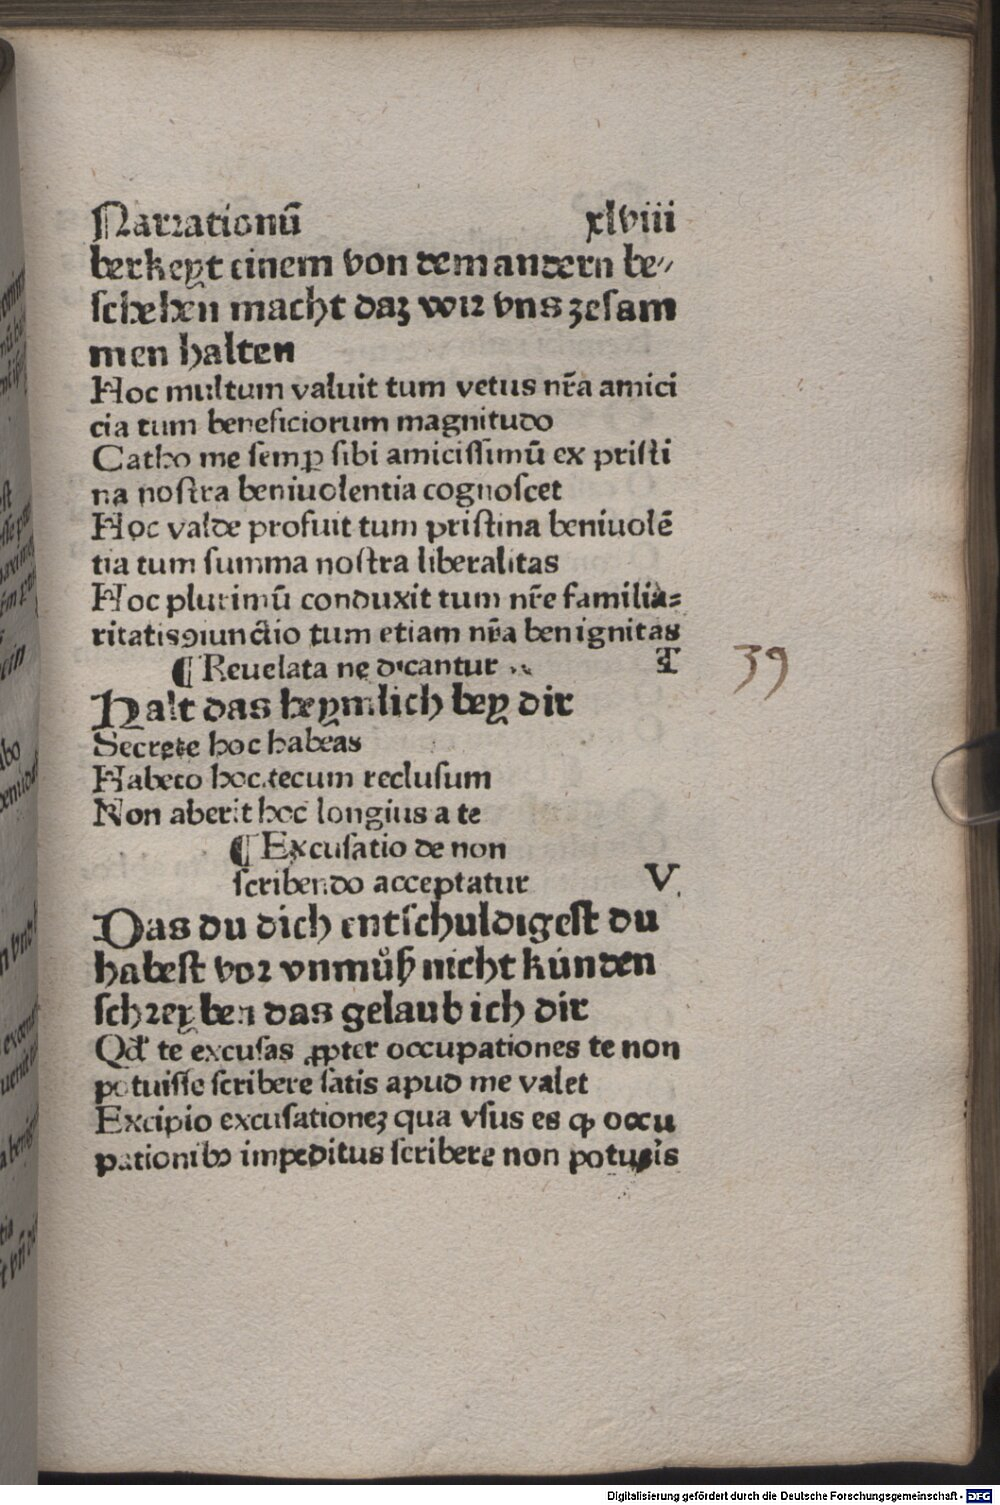 Narrationū xlviii
berkeyt einem von dem andern be⸗
schehen macht daz wir vns zesam
men halten
Hoc multum valuit tum vetus nr̄a amici
cia tum beneficiorum magnitudo
Catho me semꝑ sibi amicissimū ex pristi
na nostra beniuolentia cognoscet
Hoc valde profuit tum pristina beniuolē
tia tum summa nostra liberalitas
Hoc plurimū conduxit tum nr̄e familia⸗
ritatis ꝯiunctio tum etiam nr̄a benignitas
¶ Reuelata ne dicantur T
39
Halt das heymlich bey dir
Secrete hoc habeas
Habeto hoc tecum reclusum
Non aberit hoc longius a te
¶ Excusatio de non
scribendo acceptatur V
Das du dich entschuldigest du
habest vor vnmůß nicht künden
schreyben das gelaub ich dir
Qd' te excusas ꝓpter occupationes te non
potuisse scribere satis apud me valet
Excipio excusationeʒ qua vsus es ꝙ occu
pationibꝰ impeditus scribere non potueris
Digitalisierung gefördert durch die Deutsche Forschungsgemeinschaft - DFG